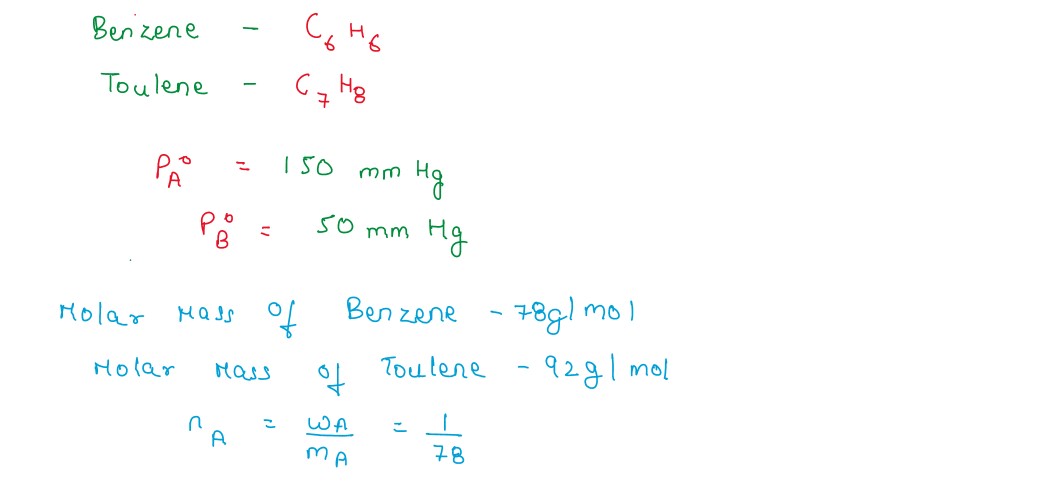 Benzene - C₆H₆
Toulene - C₇H₈
P_A° = 150 mm Hg
P_B° = 50 mm Hg
Molar Mass Of Benzene - 78g/mol
Molar Mass of Toulene - 92g/mol
n_A = W_A/m_A = 1/78